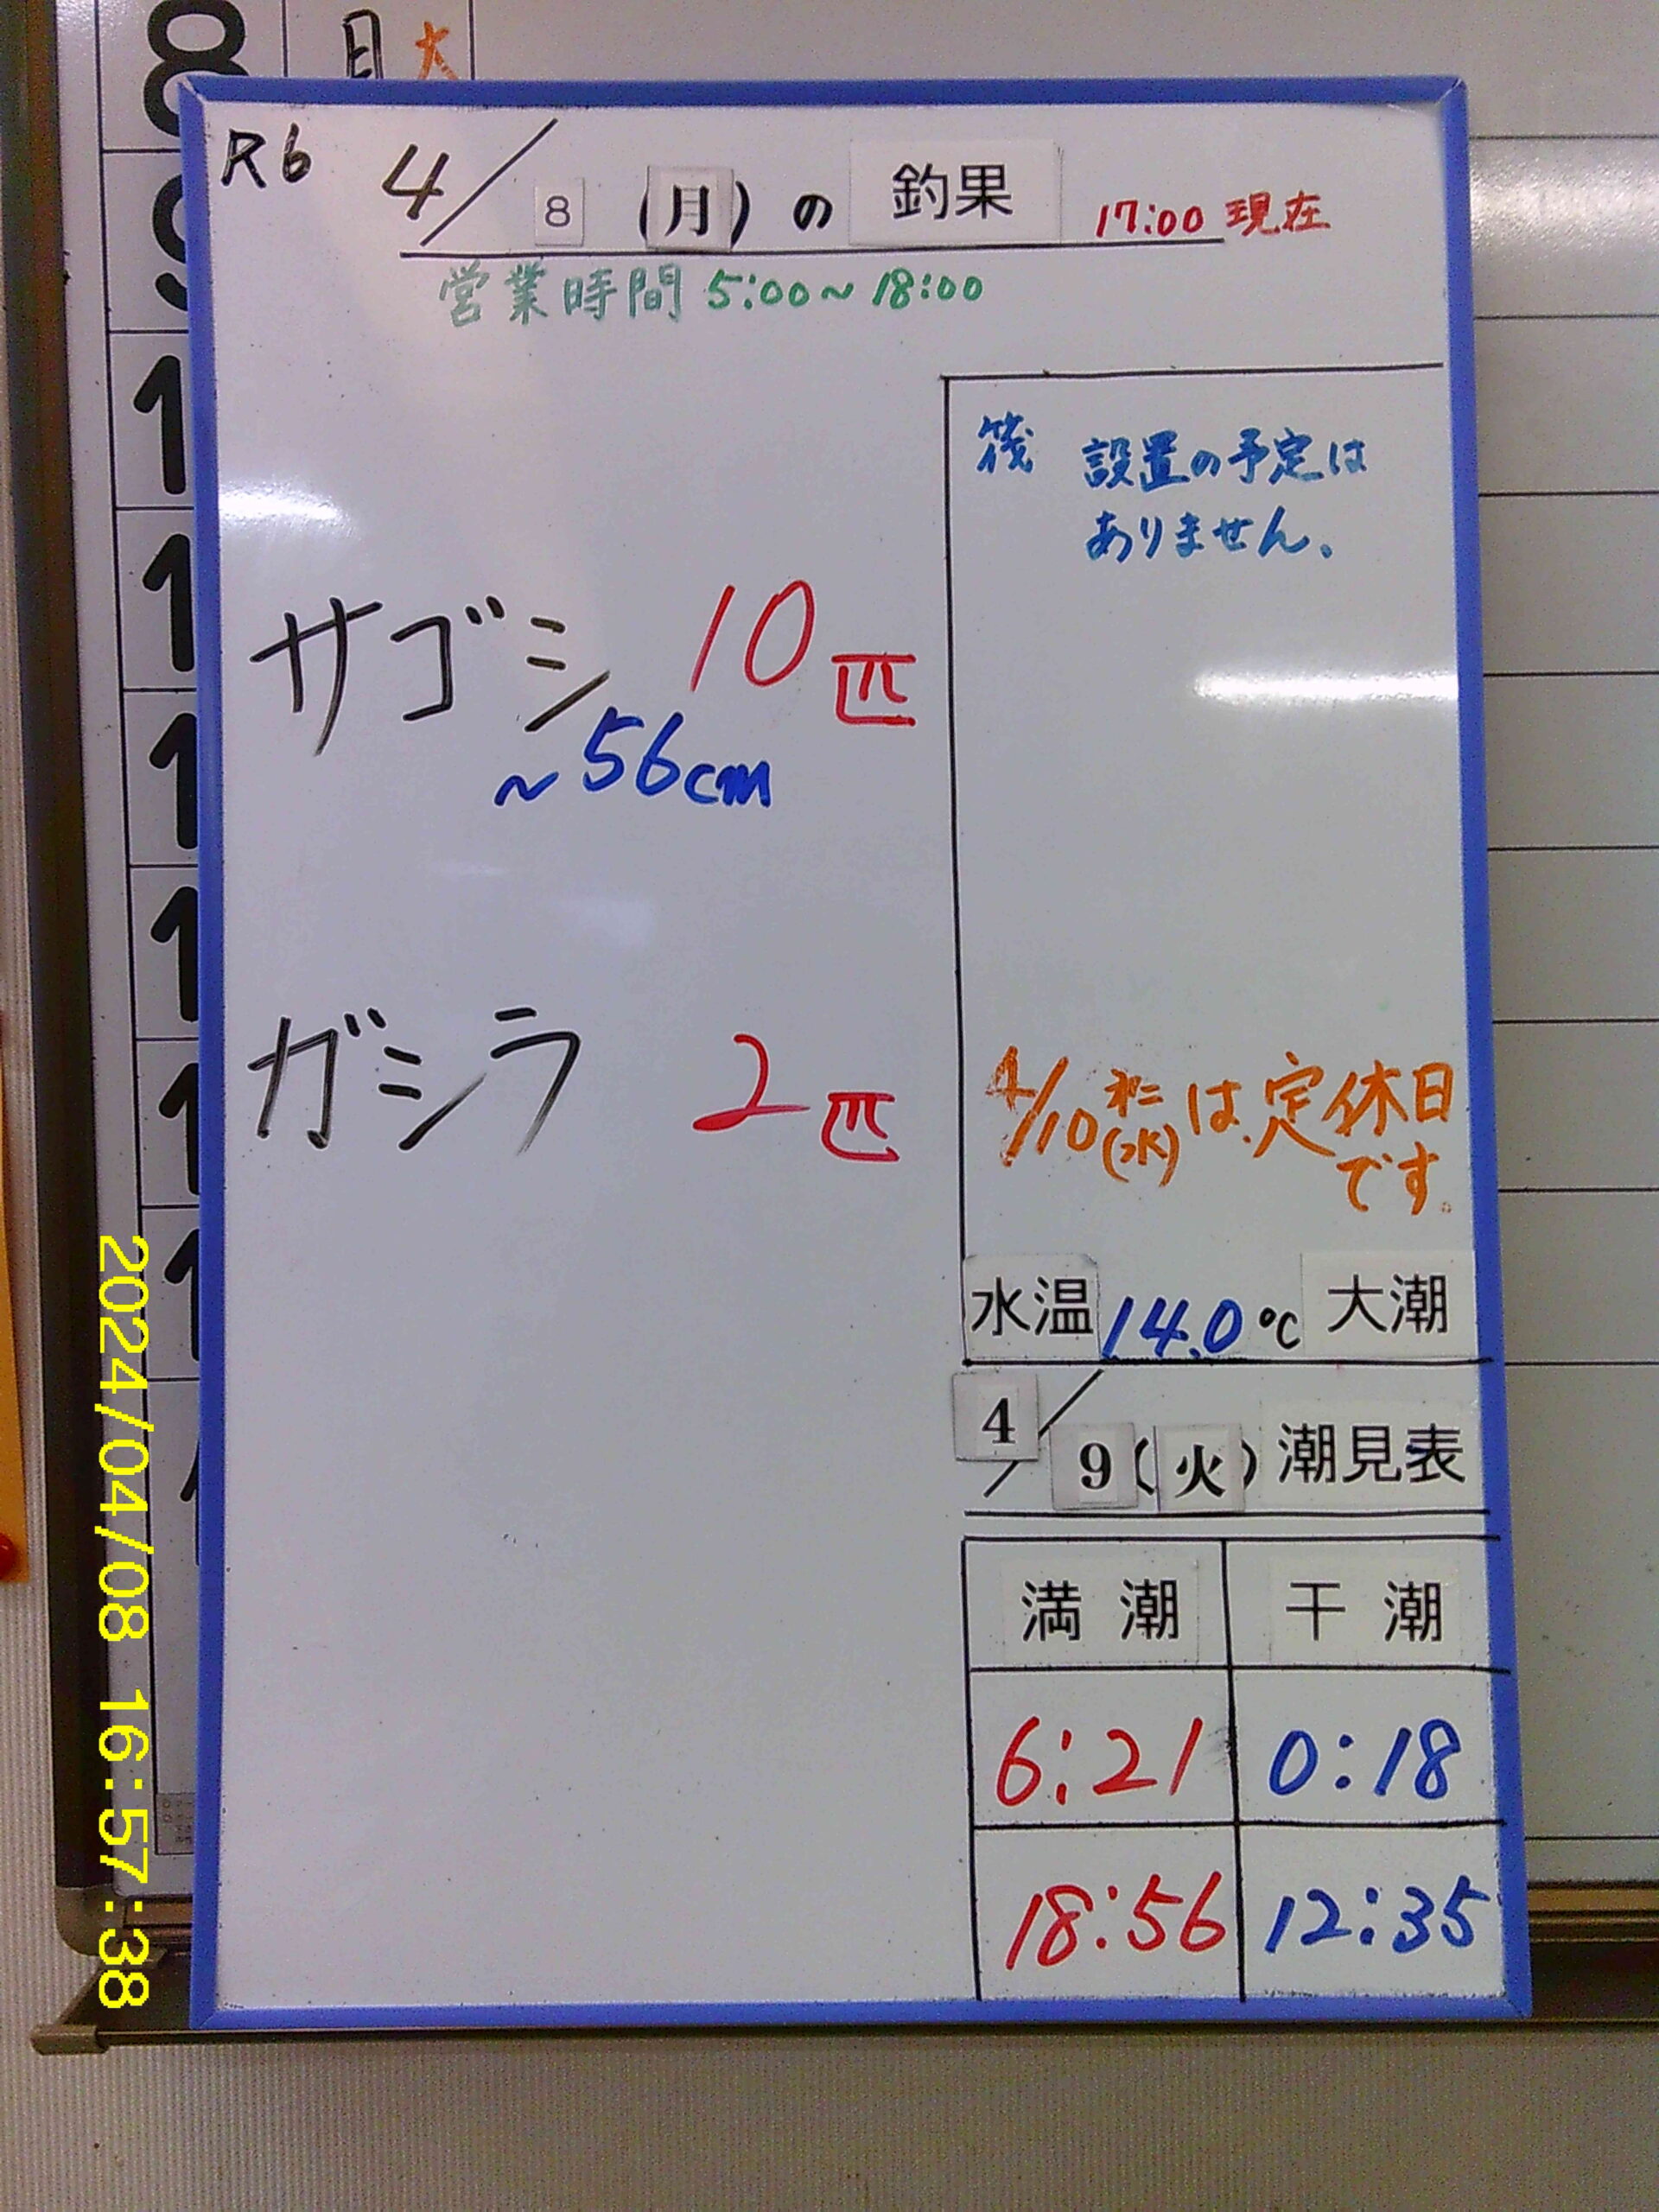 8 月 大
R6 4/8 (月) の 釣果 17:00 現在
営業時間 5:00~18:00
筏 設置の予定は
ありません。
サゴシ 10匹
~56cm
ガシラ 2匹
4/10 第二(水)は定休日
です。
水温 14.0℃ 大潮
4/9(火)潮見表
満潮 干潮
6:21 0:18
18:56 12:35
2024/04/08 16:57:38